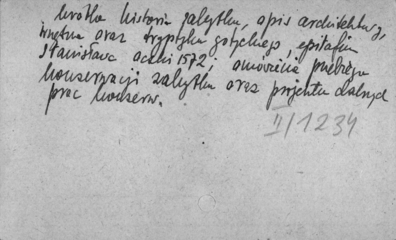 krótka historia zabytku, opis architektury,
wnętrza oraz tryptyku gotyckiego, epitafium
Stanisława 1572, omówienie przebiegu
konserwacji zabytku oraz projektu dalszych
prac konserw.
II/1234